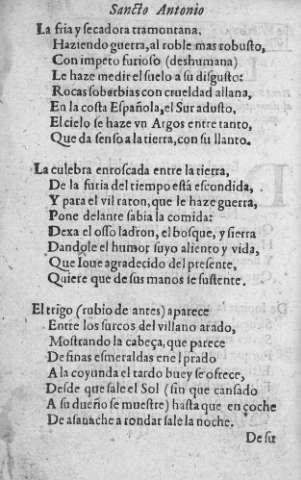 Sancto Antonio
La fria y secadora tramontana.
Haziendo guerra, al roble mas robusto,
Con impeto furioso (deshumana)
Le haze medir el suelo a su disgusto:
Rocas soberbias con crueldad allana,
En la costa Española, el Sur adusto,
El cielo se haze vn Argos entre tanto,
Que da senso a la tierra, con su llanto.
La culebra enroscada entre la tierra,
De la furia del tiempo está escondida,
Y para el vil raton, que le haze guerra,
Pone delante sabia la comida:
Dexa el osso ladron, el bosque, y sierra
Dandole el humor suyo aliento y vida,
Que Ioue agradecido del presente,
Quiere que de sus manos se sustente.
El trigo (rubio de antes) aparece
Entre los surcos del villano arado,
Mostrando la cabeça, que parece
De finas esmeraldas en el prado
A la coyunda el tardo buey se ofrece,
Desde que sale el Sol (sin que cansado
A su dueño se muestre) hasta que en coche
De asauache a rondar sale la noche.
De su